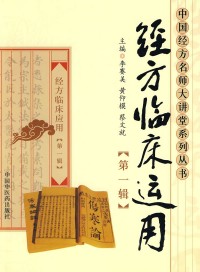 中国经方名师大讲堂系列丛书
主编 李赛美 黄仰模 蔡文就
经方临床运用
【第一辑】
经方临床应用
【第一辑】
中国中医药出版社
傷寒論